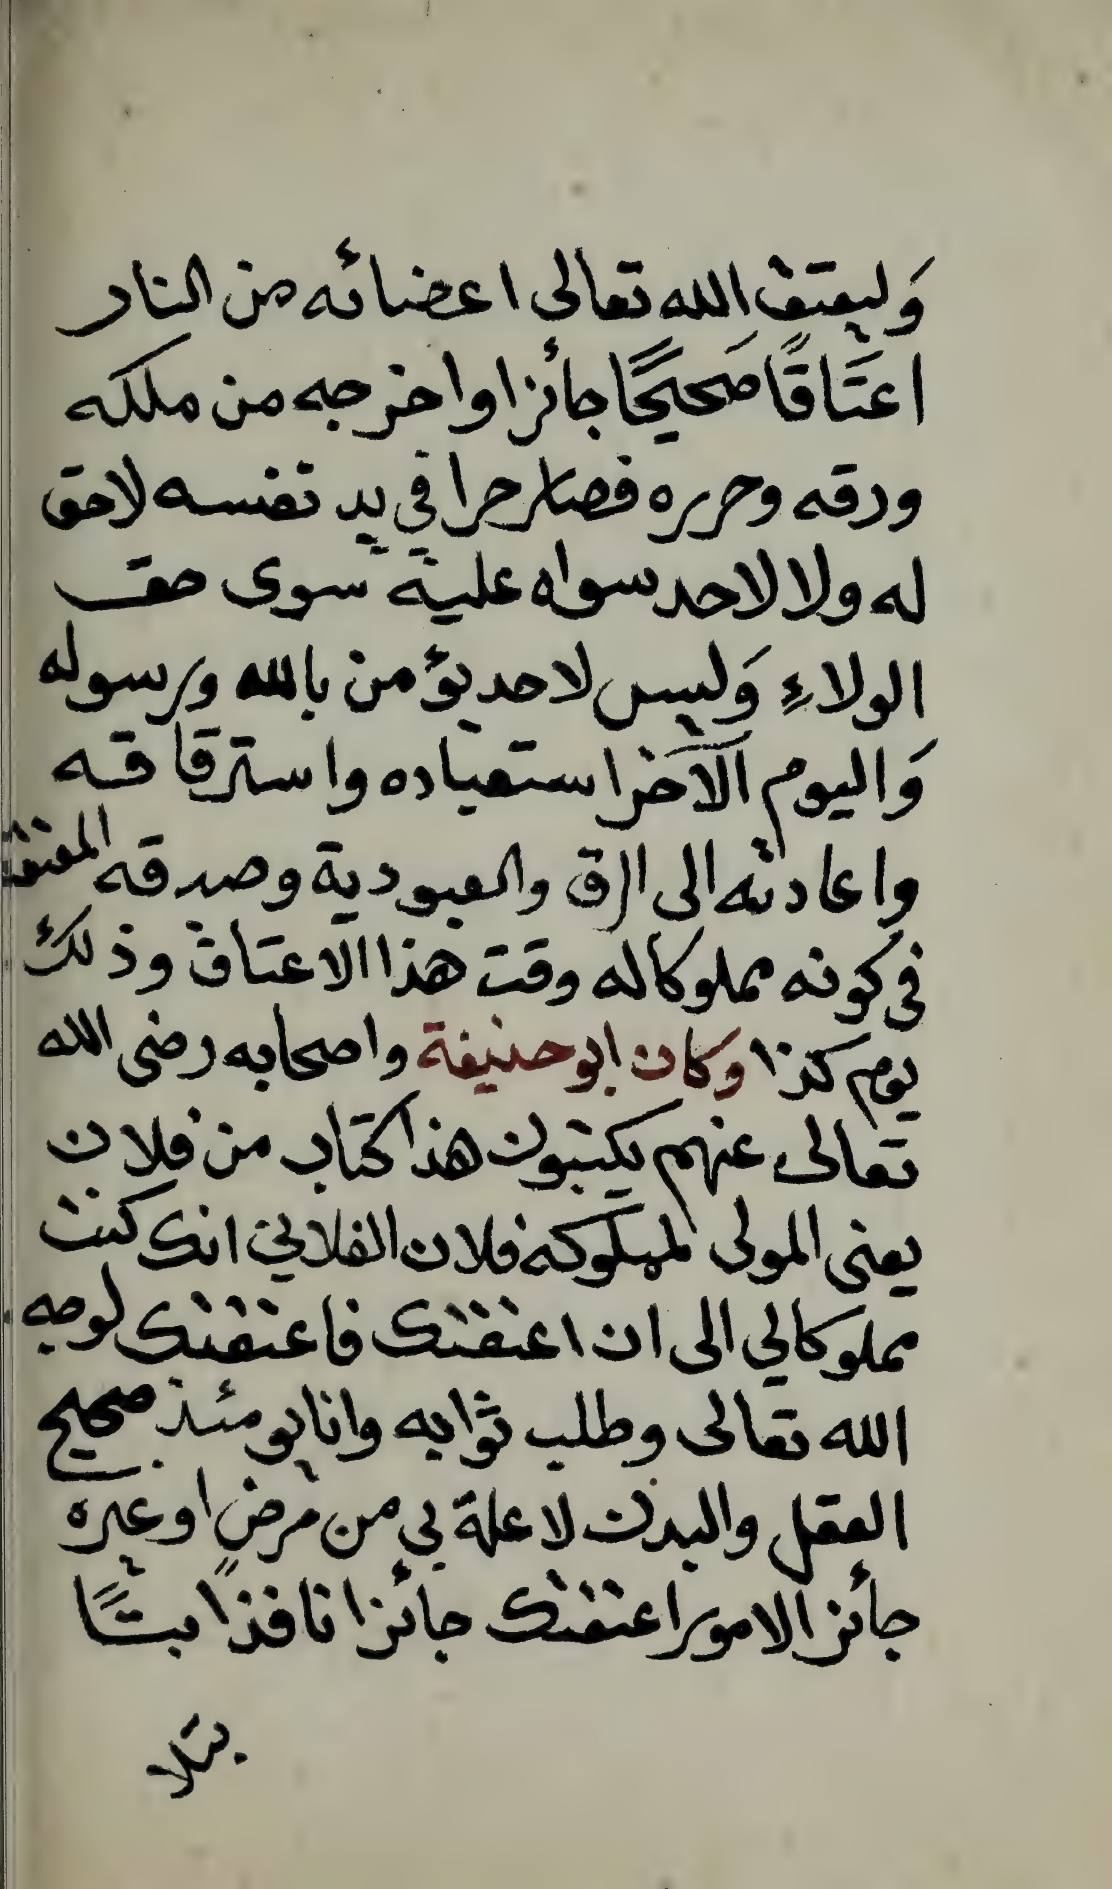 وَليعتق الله تعالى اعضائه من النار
اعتَاقًا صَحيحًا جائزا واخرجه من ملكه
ورقه وحرره فصار حرا في يد نفسه لاحق
له ولا لاحد سواه عليه سوى حق
الولاءِ وَليس لاحد يؤمن بالله ورسوله
وَاليوم الآخر استعباده واسترقاقه
واعادته الى الرق والعبودية وصدقه المعتق
في كونه مملوكا له وقت هذا الاعتاق وذلك
يوم كذا وكان ابو حنيفة واصحابه رضى الله
تعالى عنهم يكتبون هذا كتاب من فلان
يعنى المولى لمملوكه فلان الفلاني انك كنت
مملوكا لي الى ان اعتقتك فاعتقتك لوجه
الله تعالى وطلب ثوابه وانا يومئذ صحيح
العقل والبدن لا علة بي من مَرضٍ او غيره
جائز الامور اعتقتك جائزا نافذًا بتًا
بتلا